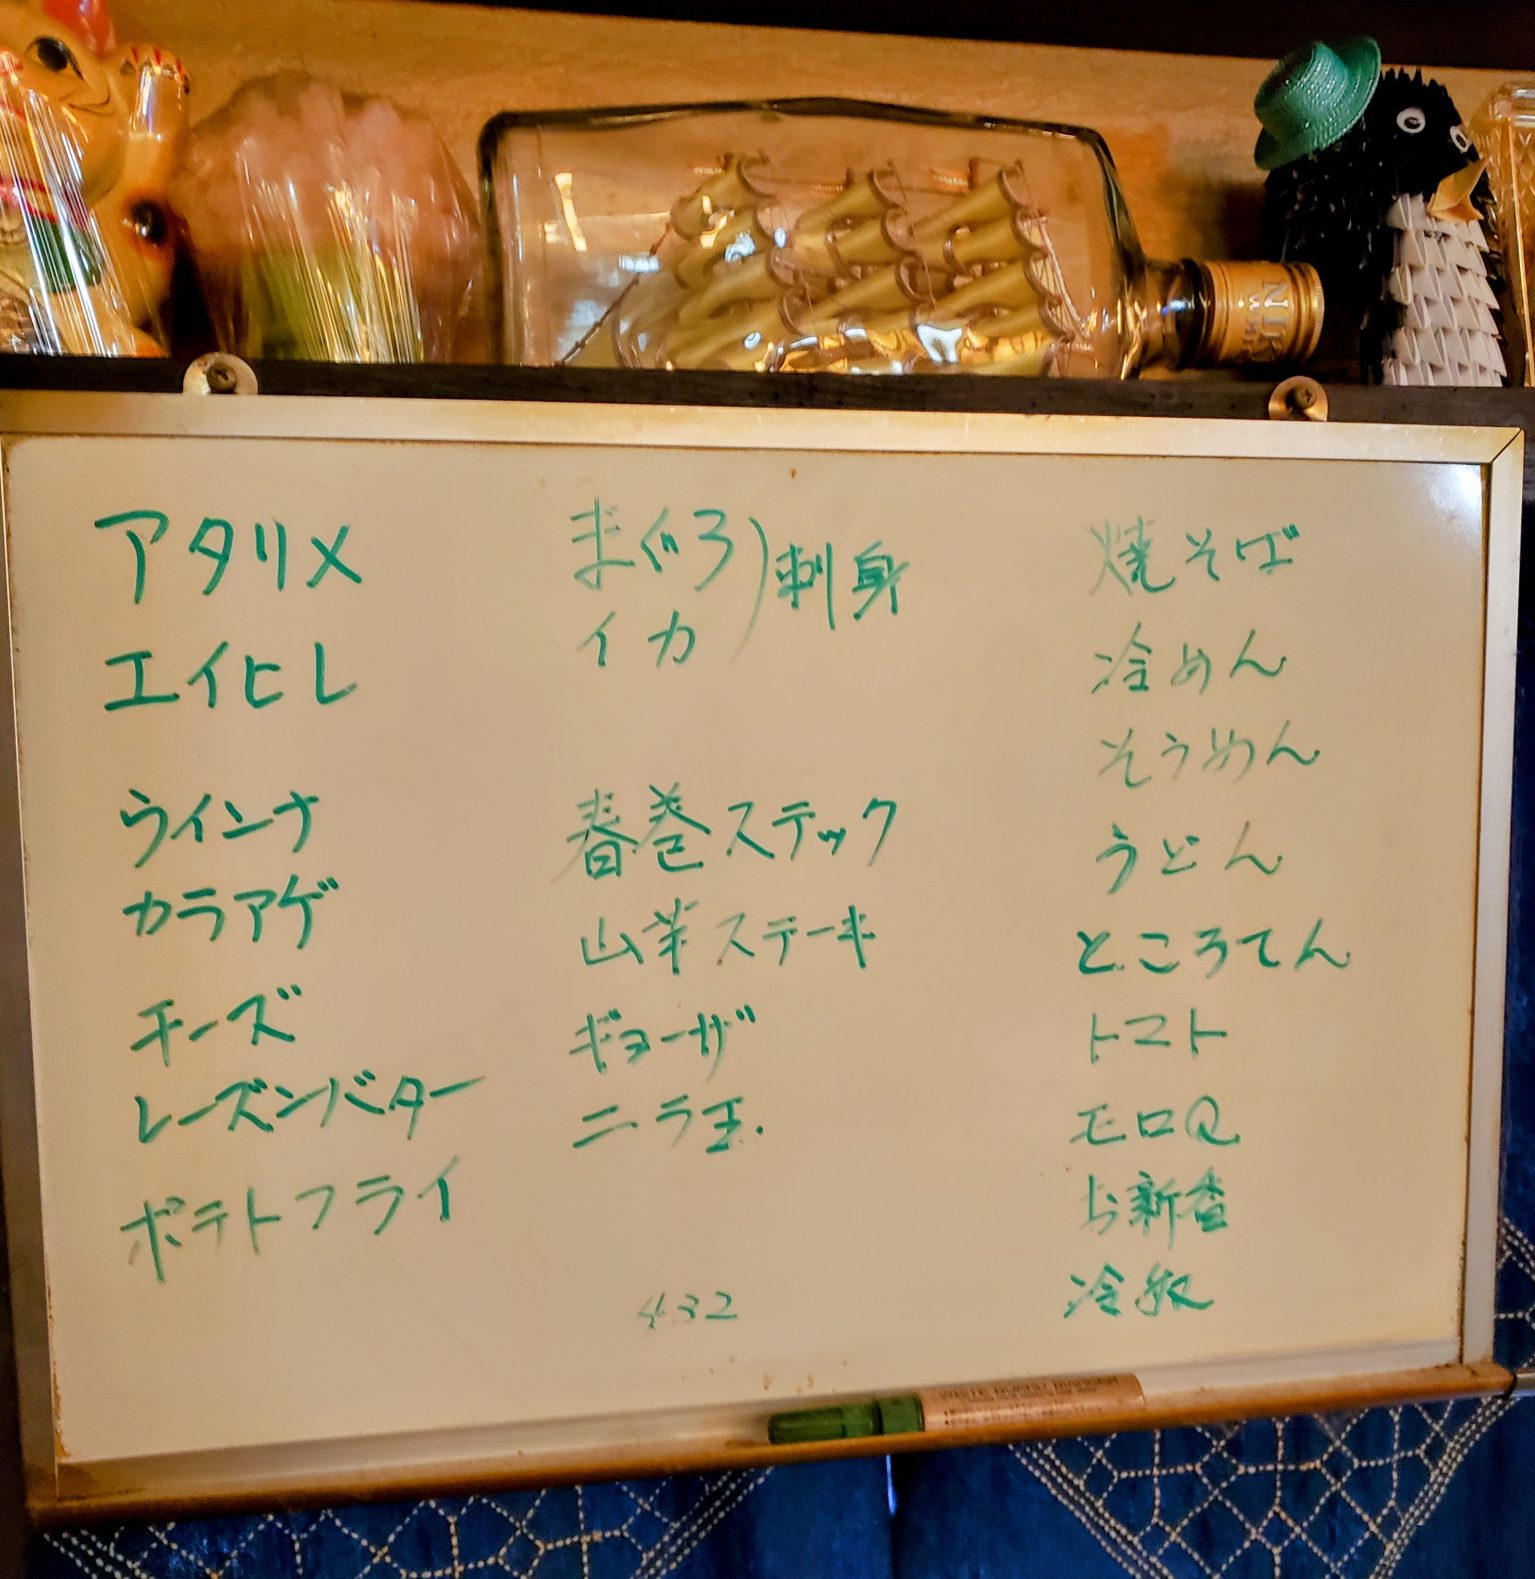 NIKK
アタリメ
エイヒレ
ウインナ
カラアゲ
チーズ
レーズンバター
ポテトフライ
まぐろ
イカ
刺身
春巻ステック
山芋ステーキ
ギョーザ
ニラ玉.
432
焼そば
冷めん
そうめん
うどん
ところてん
トマト
モロQ
お新香
冷奴
WHITE BOARD MARKER